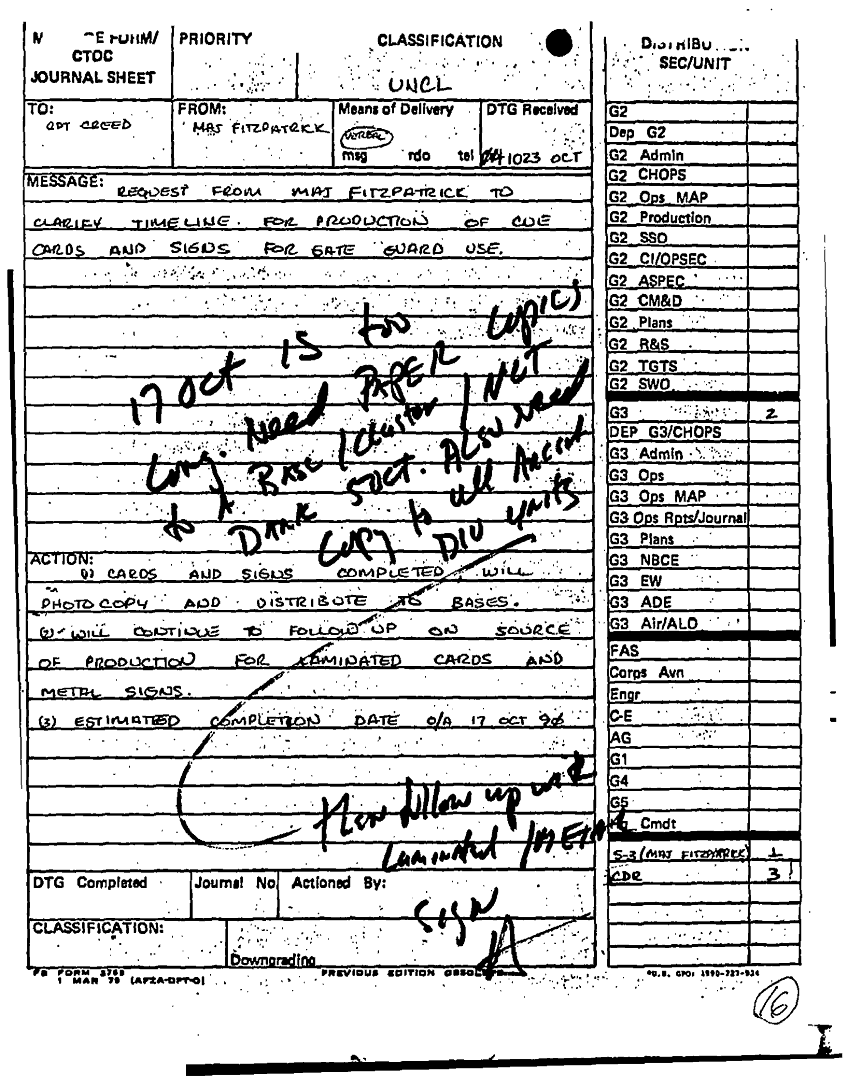 E FORM/
CTOC
JOURNAL SHEET
PRIORITY
CLASSIFICATION
UNCL
DISTRIBU
SEC/UNIT
TO:
CPT CREED
FROM:
MAJ FITZPATRICK
Means of Delivery
VERBAL
msg rdo tel
DTG Received
041023 OCT
MESSAGE: REQUEST FROM MAJ FITZPATRICK TO
CLARIFY TIMELINE FOR PRODUCTION OF CUE
CARDS AND SIGNS FOR GATE GUARD USE.
17 Oct is too
Long. Need PAPER Copies
to A BASE / Cluster / NLT
DARK 5 OCT. Also need
Copy to all
DIV units
ACTION:
(1) CARDS AND SIGNS COMPLETED WILL
PHOTOCOPY AND DISTRIBUTE TO BASES.
(2) WILL CONTINUE TO FOLLOW UP ON SOURCE
OF PRODUCTION FOR LAMINATED CARDS AND
METAL SIGNS.
(3) ESTIMATED COMPLETION DATE O/A 17 OCT 90
then follow up with
Laminated / METAL
Sign
DTG Completed
Journal No.
Actioned By:
CLASSIFICATION:
Downgrading
FB FORM 3765
1 MAR 79 (AFZA-DPT-O)
PREVIOUS EDITION OBSOLETE
G2
Dep G2
G2 Admin
G2 CHOPS
G2 Ops MAP
G2 Production
G2 SSO
G2 CI/OPSEC
G2 ASPEC
G2 CM&D
G2 Plans
G2 R&S
G2 TGTS
G2 SWO
G3 2
DEP G3/CHOPS
G3 Admin
G3 Ops
G3 Ops MAP
G3 Ops Rpts/Journal
G3 Plans
G3 NBCE
G3 EW
G3 ADE
G3 Air/ALO
FAS
Corps Avn
Engr
C-E
AG
G1
G4
G5
Hq Cmdt
S-3 (MAJ FITZPATRICK) 1
CDR 3
16